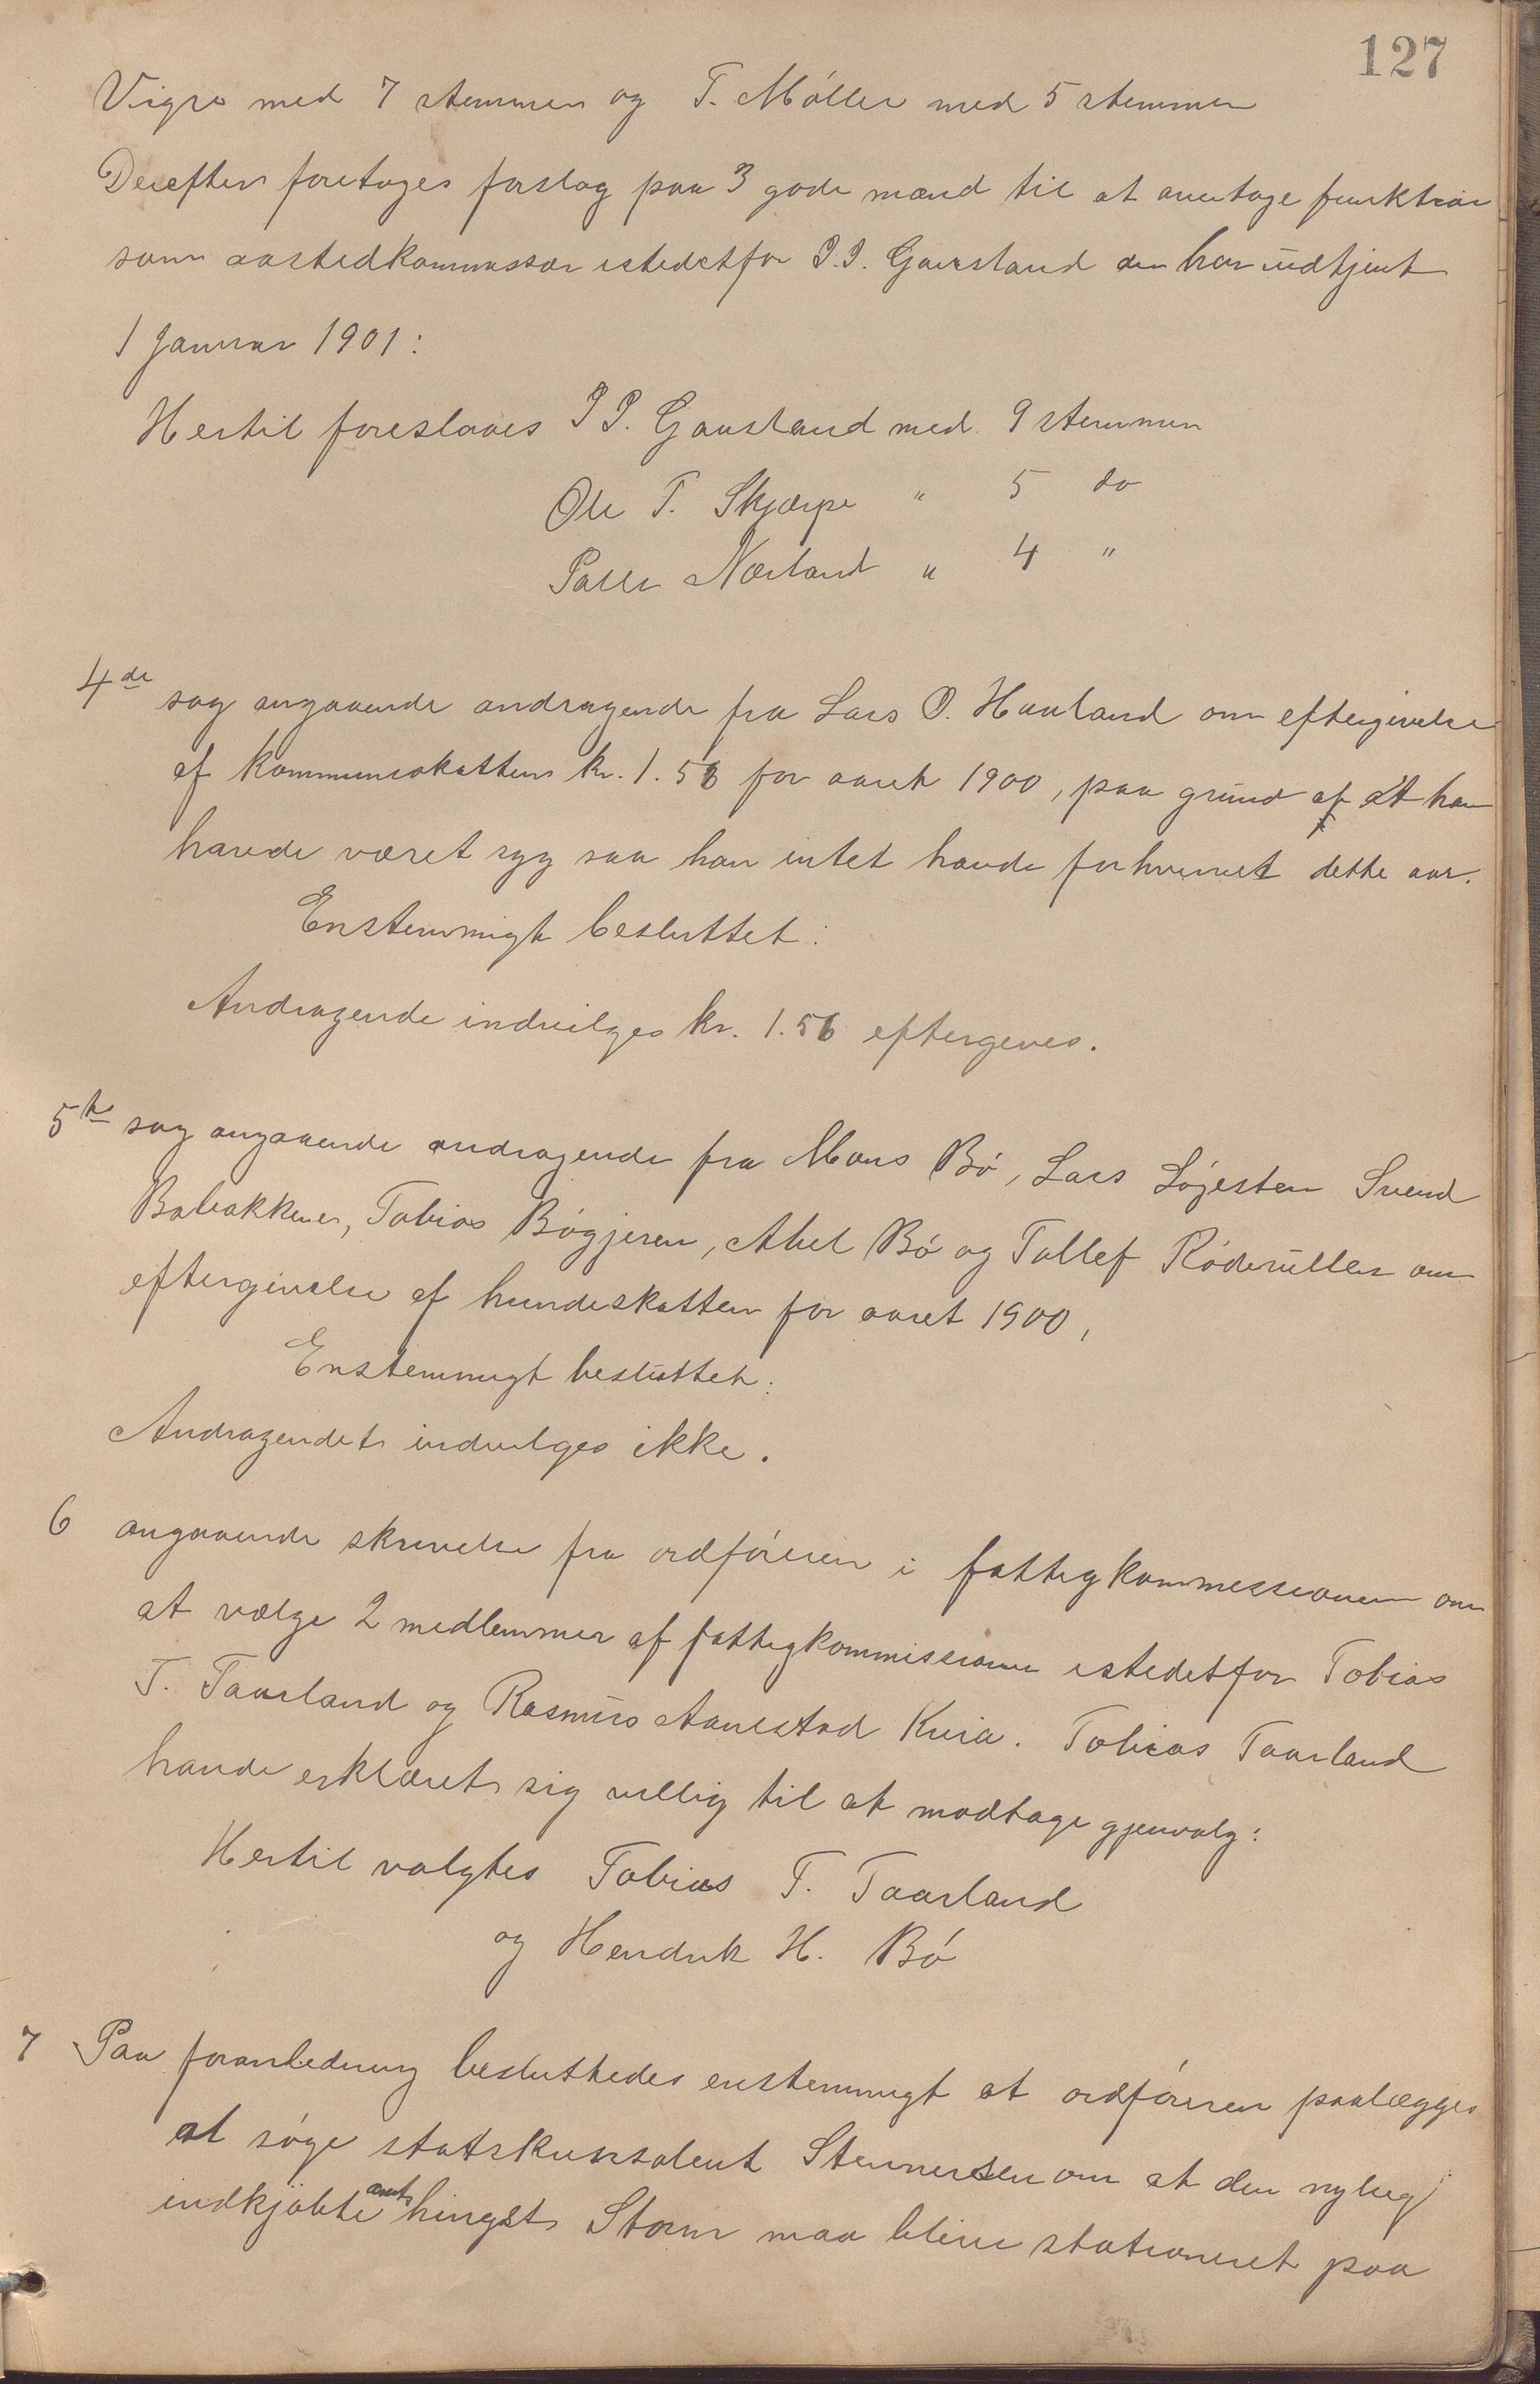 127
Vigre med 7 stemmer og T. Móller med 5 stemmer
Derefter foretoges forslag paa 3 gode mænd til at overtage funktion
som aastedkommissær istedetfor P.P. Gausland der har udtjent
1 Januar 1901:
Hertil foresloaes P P. Gausland med 9 stemmer
Ole T. Skjærpe " 5 do
Salve Nærland " 4 "
4de sag angaaende andragende fra Lars O. Haaland om eftergivelse
af kommuneskatten kr. 1.56 for aaret 1900, paa grund af at han
havde været syg saa han intet havde forhvervet dette aar.
Enstemmigt besluttet:
Andragende indvilges kr. 1.56 eftergives.
5te sag angaaende andragende fra Mons Bó, Lars Svend
Bobakkene, Tobias Bógjeren, Abel Bó og Tollef om
eftergivelse af hundeskatten for aaret 1900,
Enstemmigt besluttet:
Andragendet indvilges ikke.
6 angaaende skrivelse fra ordfóreren i fattigkommissionen om
at vælge 2 medlemmer af fattigkommissionen istedetfor Tobias
T. Taarland og Rasmus Aanestad Kvia. Tobias Taarland
havde erklæret sig villig til at modtage gjenvalg:
Hertil valgtes Tobias T. Taarland
og Hendrik H. Bó
7 Paa foranledning besluttedes enstemmigt at ordfóreren paalægges
at sóge statskunsolent Stennersen om at den nylig
indkjóbte amtshingst Storm maa blive stationeret paa